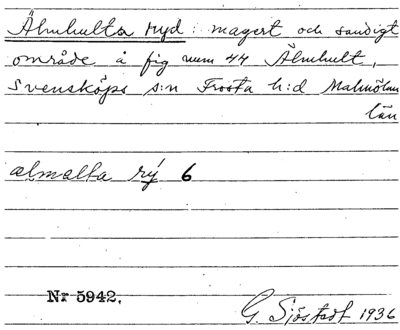 Älmhults ryd: magert och sandigt
område å fig num 44 Älmhult,
Svensköps s:n Frosta h:d Malmöhus
län
almalta rý 6
Nr 5942.
G. Sjöstedt 1936